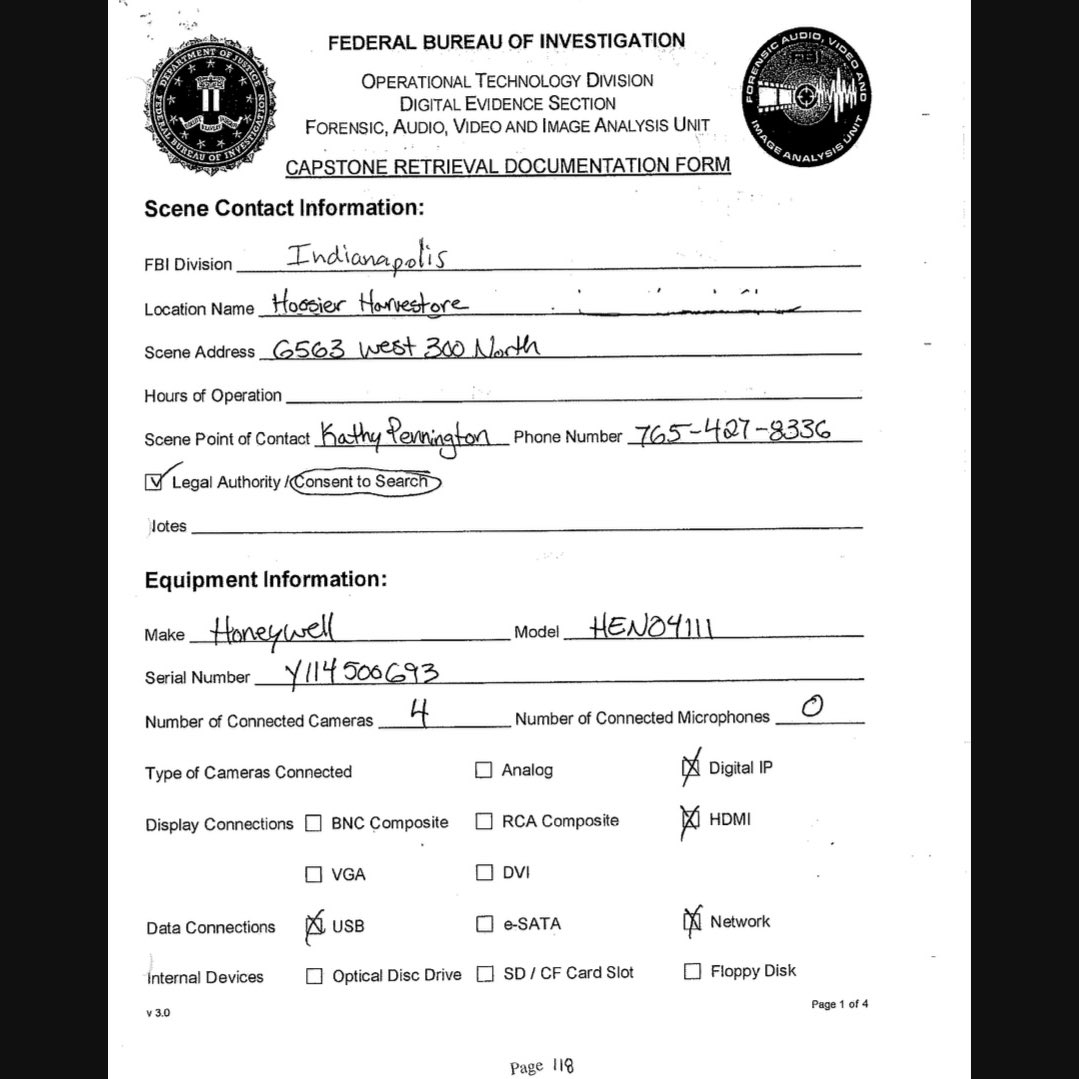 DEPARTMENT OF JUSTICE
FEDERAL BUREAU OF INVESTIGATION
FEDERAL BUREAU OF INVESTIGATION
OPERATIONAL TECHNOLOGY DIVISION
DIGITAL EVIDENCE SECTION
FORENSIC, AUDIO, VIDEO AND IMAGE ANALYSIS UNIT
CAPSTONE RETRIEVAL DOCUMENTATION FORM
FORENSIC AUDIO, VIDEO AND
FBI
IMAGE ANALYSIS UNIT
Scene Contact Information:
FBI Division Indianapolis
Location Name Hoosier Harvestore
Scene Address 6563 West 300 North
Hours of Operation
Scene Point of Contact Kathy Pennington Phone Number 765-427-8336
Legal Authority / Consent to Search
Notes
Equipment Information:
Make Honeywell Model HEN04111
Serial Number Y114500693
Number of Connected Cameras 4 Number of Connected Microphones 0
Type of Cameras Connected Analog Digital IP
Display Connections BNC Composite RCA Composite HDMI
VGA DVI
Data Connections USB e-SATA Network
Internal Devices Optical Disc Drive SD / CF Card Slot Floppy Disk
v 3.0 Page 1 of 4
Page 118